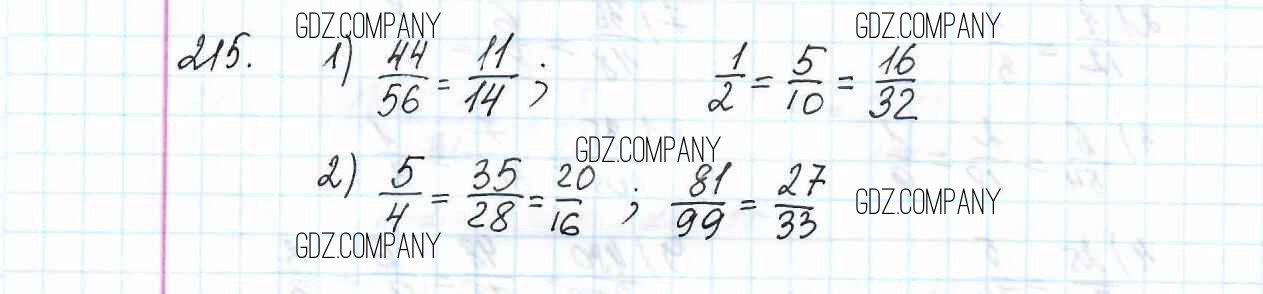 GDZ.COMPANY GDZ.COMPANY
215. 1) 44/56 = 11/14 ; 1/2 = 5/10 = 16/32
GDZ.COMPANY
2) 5/4 = 35/28 = 20/16 ; 81/99 = 27/33
GDZ.COMPANY
GDZ.COMPANY